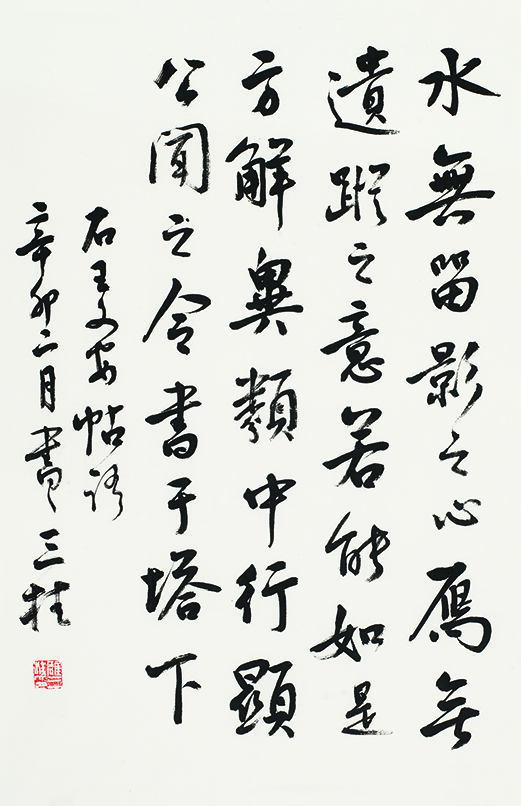 水無留影之心鴈无
遺蹤之意若能如是
方解異類中行顯
公聞之令書于塔下
右王文安帖語
辛卯二月書三桂